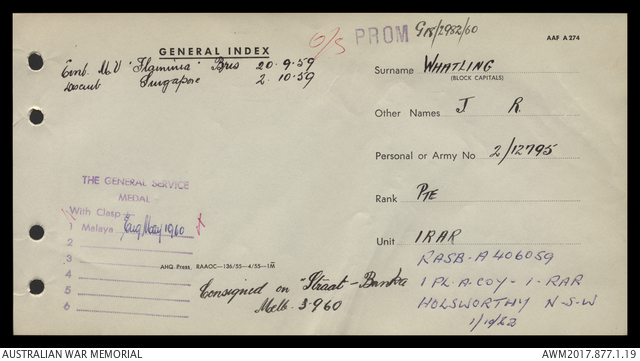 O/S PROM G18/2982/60
AAF A 274
GENERAL INDEX
Emb. M.V "Flaminia" Bris 20.9.59
Disemb Singapore 2.10.59
Surname WHATLING
(BLOCK CAPITALS)
Other Names J R.
Personal or Army No 2/12795
Rank PTE
Unit 1RAR
RASB-A406059
1 PL-A COY-1-RAR
HOLSWORTHY N-S-W
1/10/62
THE GENERAL SERVICE
MEDAL
With Clasp
1 Malaya May 1960
2
3
4
5
6
AHQ Press, RAAOC—136/55—4/55—1M
Consigned on "Straat-Banka
Melb 3.960
AUSTRALIAN WAR MEMORIAL
AWM2017.877.1.19